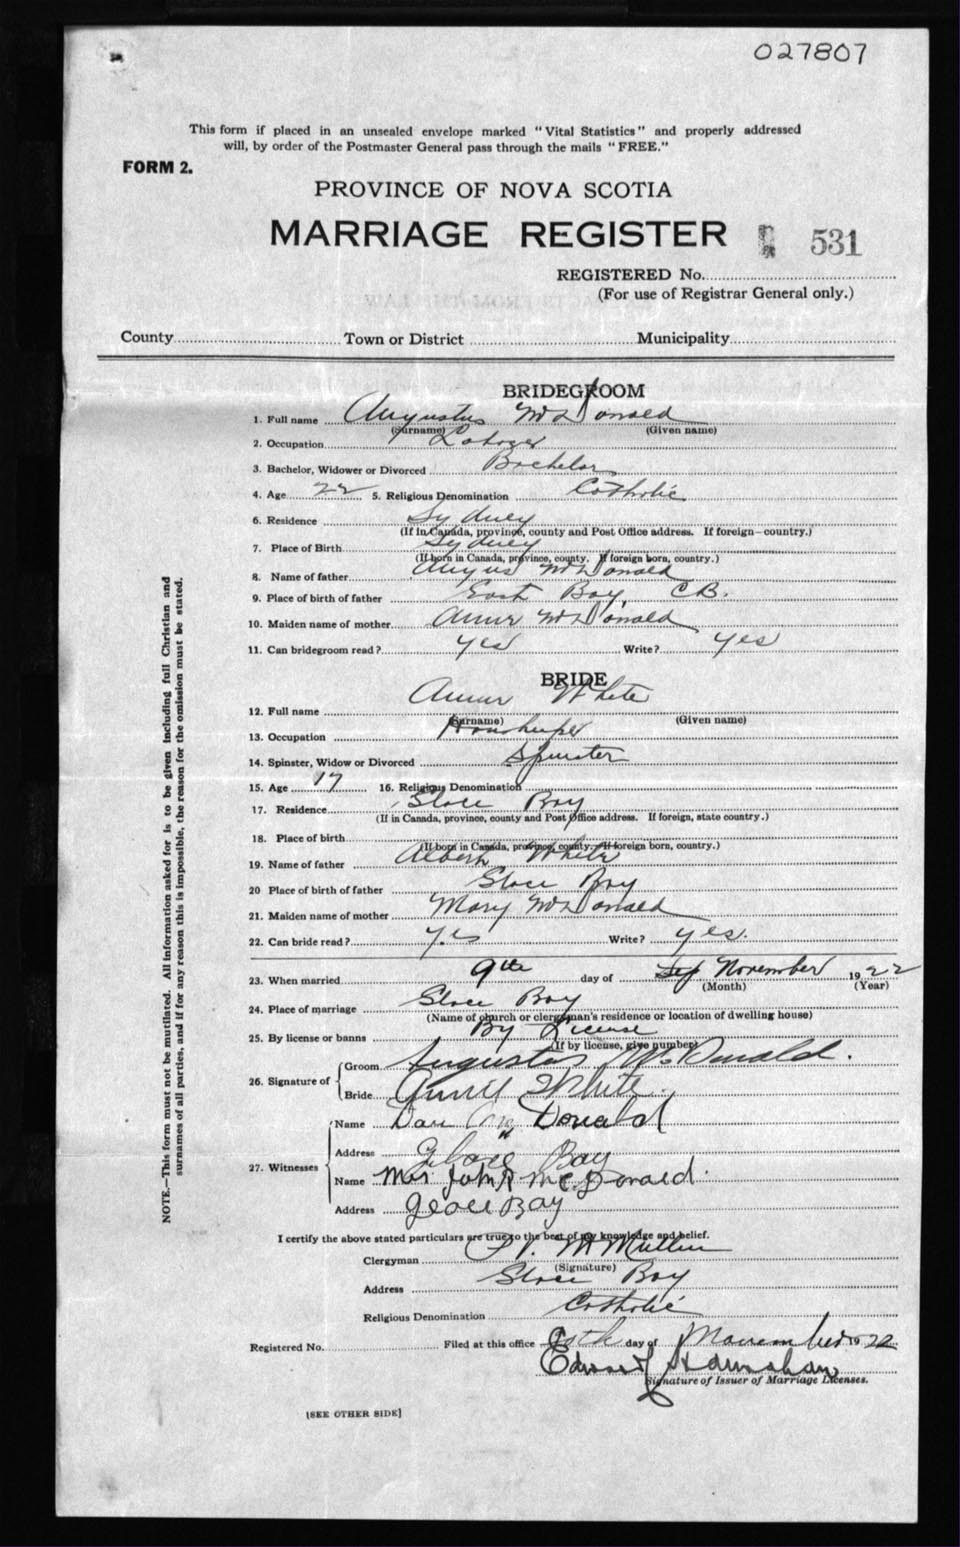 027807
This form if placed in an unsealed envelope marked "Vital Statistics" and properly addressed
will, by order of the Postmaster General pass through the mails "FREE."
FORM 2.
PROVINCE OF NOVA SCOTIA
MARRIAGE REGISTER
531
REGISTERED No.
(For use of Registrar General only.)
County Town or District Municipality
BRIDEGROOM
1. Full name Augustus McDonald
(Surname) (Given name)
2. Occupation Laborer
3. Bachelor, Widower or Divorced Bachelor
4. Age 22 5. Religious Denomination Catholic
6. Residence Sydney
(If in Canada, province, county and Post Office address. If foreign—country.)
7. Place of Birth Sydney
(If born in Canada, province, county. If foreign born, country.)
8. Name of father Angus McDonald
9. Place of birth of father East Bay, C.B.
10. Maiden name of mother Annie McDonald
11. Can bridegroom read? yes Write? yes
BRIDE
12. Full name Annie White
(Surname) (Given name)
13. Occupation Housekeeper
14. Spinster, Widow or Divorced Spinster
15. Age 17 16. Religious Denomination
17. Residence Glace Bay
(If in Canada, province, county and Post Office address. If foreign, state country.)
18. Place of birth
(If born in Canada, province, county. If foreign born, country.)
19. Name of father Albert White
20 Place of birth of father Glace Bay
21. Maiden name of mother Mary McDonald
22. Can bride read? yes Write? yes.
23. When married 9th day of Sep November 1922
(Month) (Year)
24. Place of marriage Glace Bay
(Name of church or clergyman's residence or location of dwelling house)
25. By license or banns By License
(If by license, give number)
26. Signature of Groom Augustus McDonald.
Bride Annie White.
27. Witnesses
Name Dan McDonald
Address Glace Bay
Name Mrs John A McDonald.
Address Glace Bay
I certify the above stated particulars are true to the best of my knowledge and belief.
Clergyman McMullin
(Signature)
Address Glace Bay
Religious Denomination Catholic
Registered No. Filed at this office day of November 1922
Edward
Signature of Issuer of Marriage Licenses.
[SEE OTHER SIDE]
NOTE.—This form must not be mutilated. All information asked for is to be given including full Christian and
surnames of all parties, and if for any reason this is impossible, the reason for the omission must be stated.